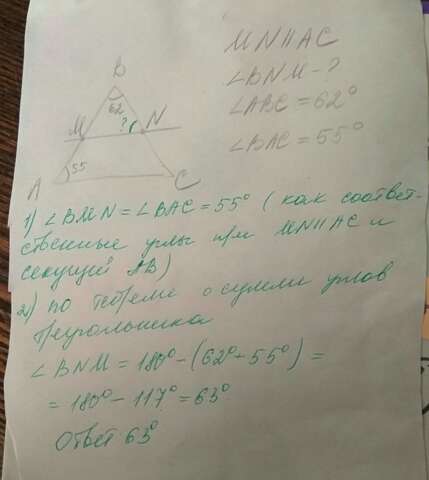 MN || AC
∠BNM - ?
∠ABC = 62°
∠BAC = 55°
B
62
M
?
N
55
A
C
1) ∠BMN = ∠BAC = 55° (как соответ-
ственные углы при MN || AC и
секущей AB)
2) по теореме о сумме углов
треугольника
∠BNM = 180° - (62° + 55°) =
= 180° - 117° = 63°
Ответ 63°